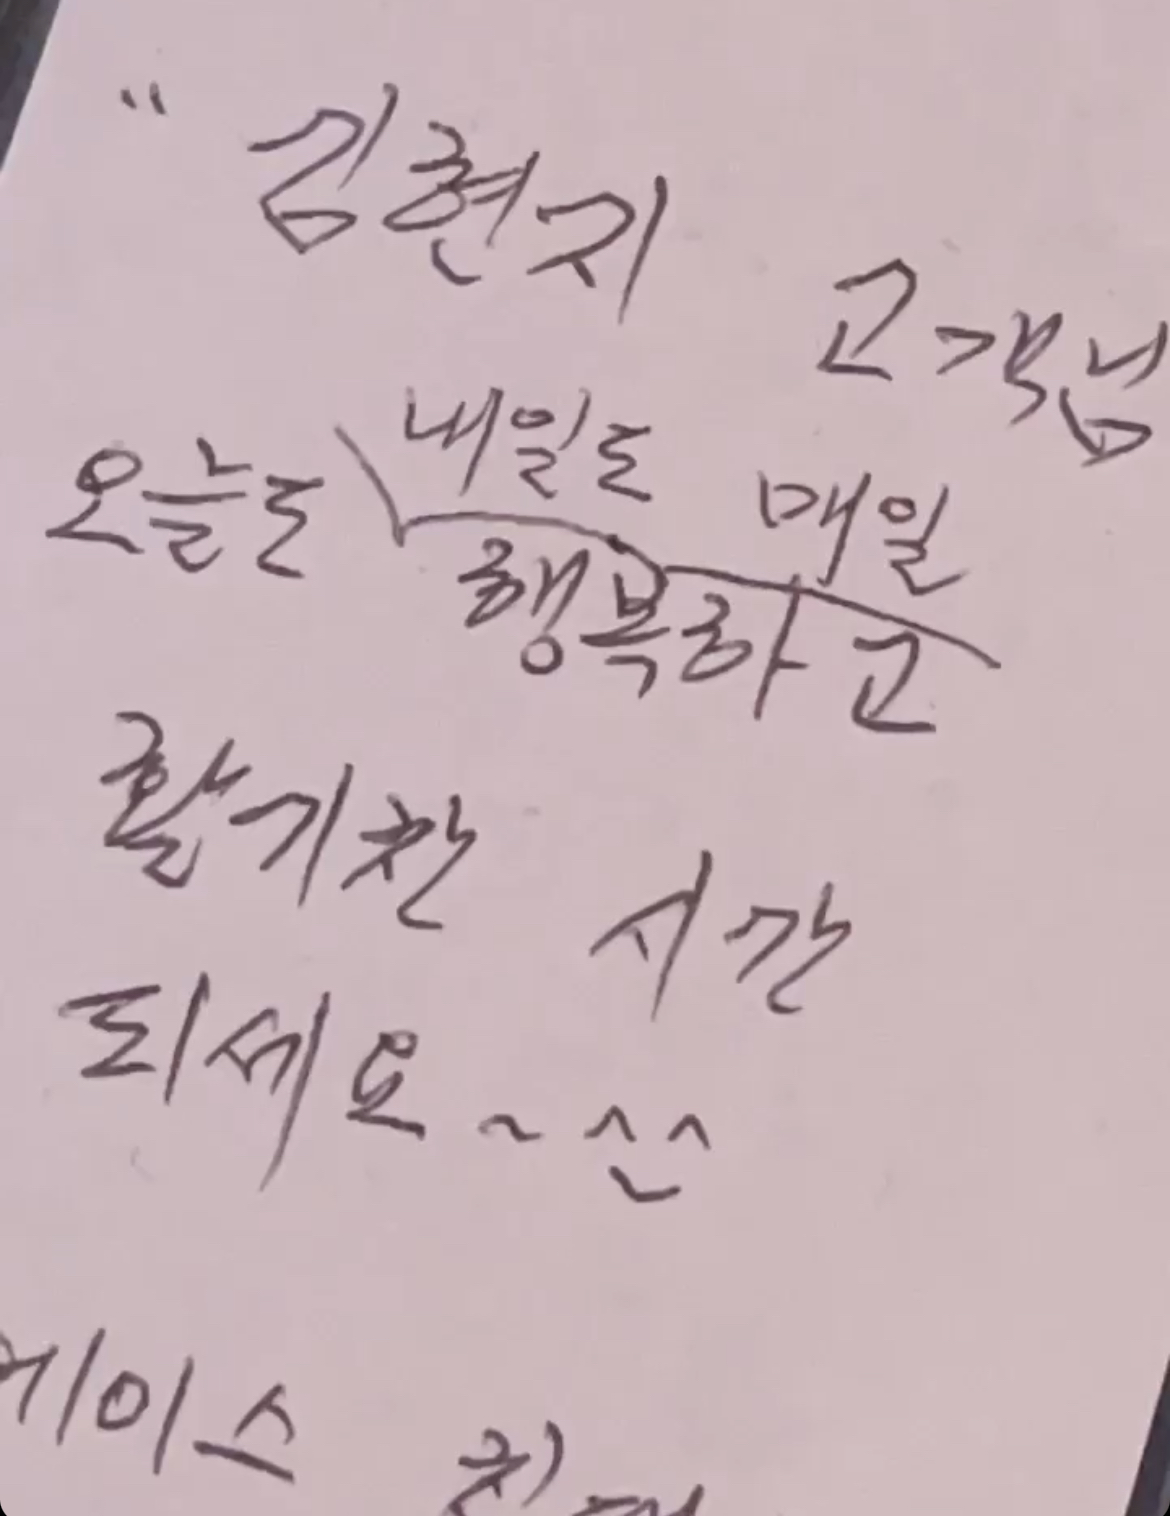 " 김현지 고객님
오늘도 내일도 매일
행복하고
활기찬 시간
되세요~^^
에이스